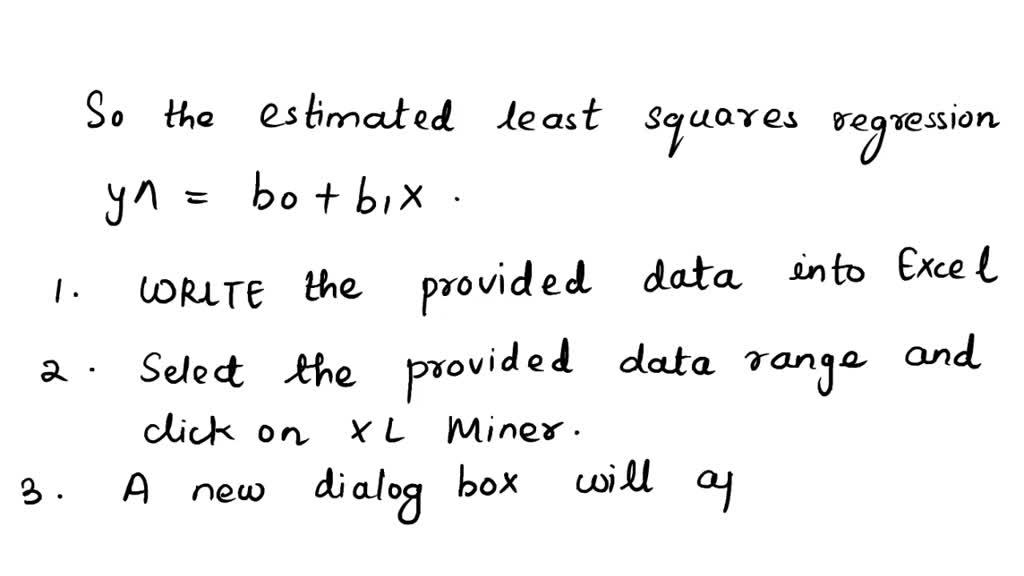 So the estimated least squares regression
y^ = b0 + b1x .
1. WRITE the provided data into Excel
2. Select the provided data range and
click on XL Miner.
3. A new dialog box will ap